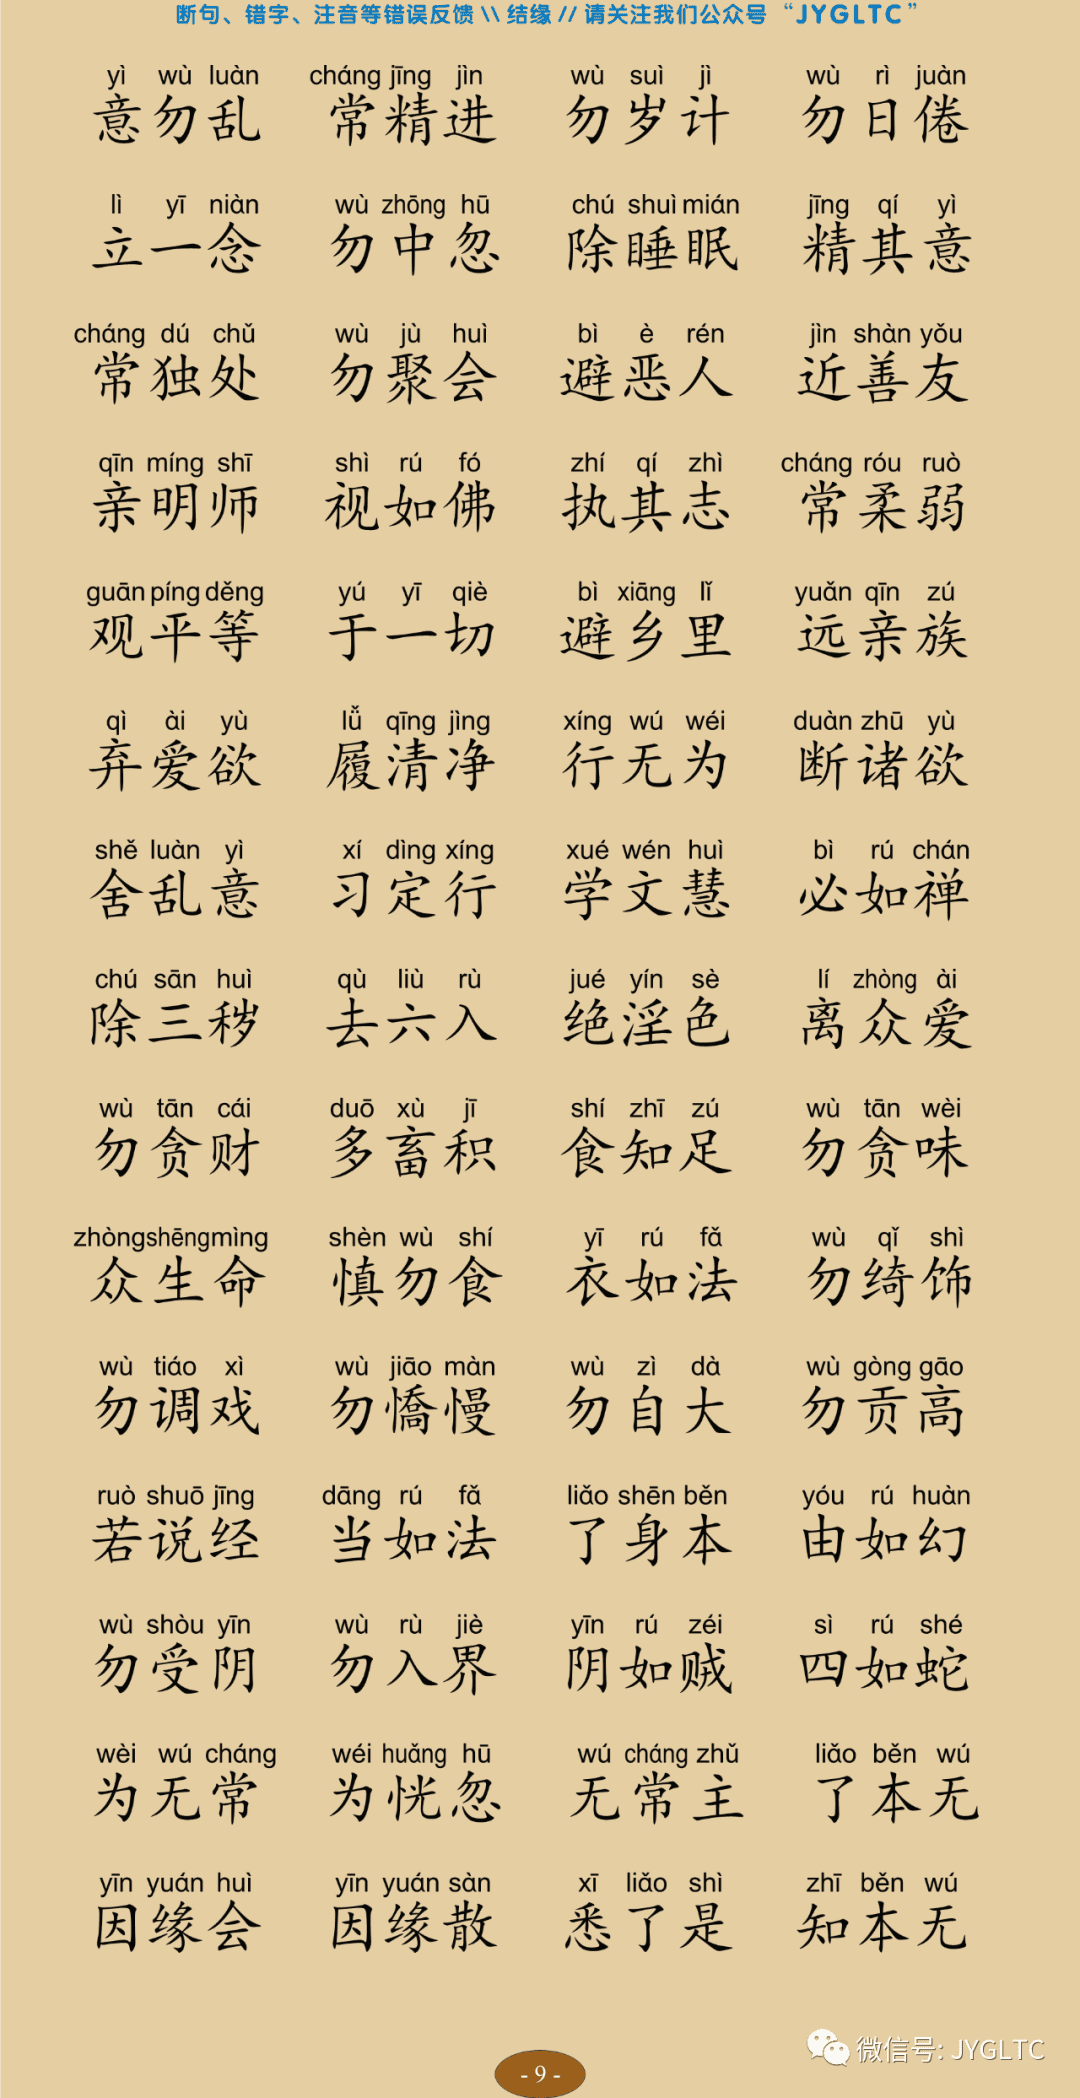 断句、错字、注音等错误反馈 \\ 结缘 // 请关注我们公众号“JYGLTC”
yì wù luàn cháng jīng jìn wù suì jì wù rì juàn
意勿乱 常精进 勿岁计 勿日倦
lì yī niàn wù zhōng hū chú shuì mián jīng qí yì
立一念 勿中忽 除睡眠 精其意
cháng dú chǔ wù jù huì bì è rén jìn shàn yǒu
常独处 勿聚会 避恶人 近善友
qīn míng shī shì rú fó zhí qí zhì cháng róu ruò
亲明师 视如佛 执其志 常柔弱
guān píng děng yú yī qiè bì xiāng lǐ yuǎn qīn zú
观平等 于一切 避乡里 远亲族
qì ài yù lǚ qīng jìng xíng wú wéi duàn zhū yù
弃爱欲 履清净 行无为 断诸欲
shě luàn yì xí dìng xíng xué wén huì bì rú chán
舍乱意 习定行 学文慧 必如禅
chú sān huì qù liù rù jué yín sè lí zhòng ài
除三秽 去六入 绝淫色 离众爱
wù tān cái duō xù jī shí zhī zú wù tān wèi
勿贪财 多畜积 食知足 勿贪味
zhòng shēng mìng shèn wù shí yī rú fǎ wù qǐ shì
众生命 慎勿食 衣如法 勿绮饰
wù tiáo xì wù jiāo màn wù zì dà wù gòng gāo
勿调戏 勿憍慢 勿自大 勿贡高
ruò shuō jīng dāng rú fǎ liǎo shēn běn yóu rú huàn
若说经 当如法 了身本 由如幻
wù shòu yīn wù rù jiè yīn rú zéi sì rú shé
勿受阴 勿入界 阴如贼 四如蛇
wèi wú cháng wéi huǎng hū wú cháng zhǔ liǎo běn wú
为无常 为恍忽 无常主 了本无
yīn yuán huì yīn yuán sàn xī liǎo shì zhī běn wú
因缘会 因缘散 悉了是 知本无
微信号: JYGLTC
- 9 -